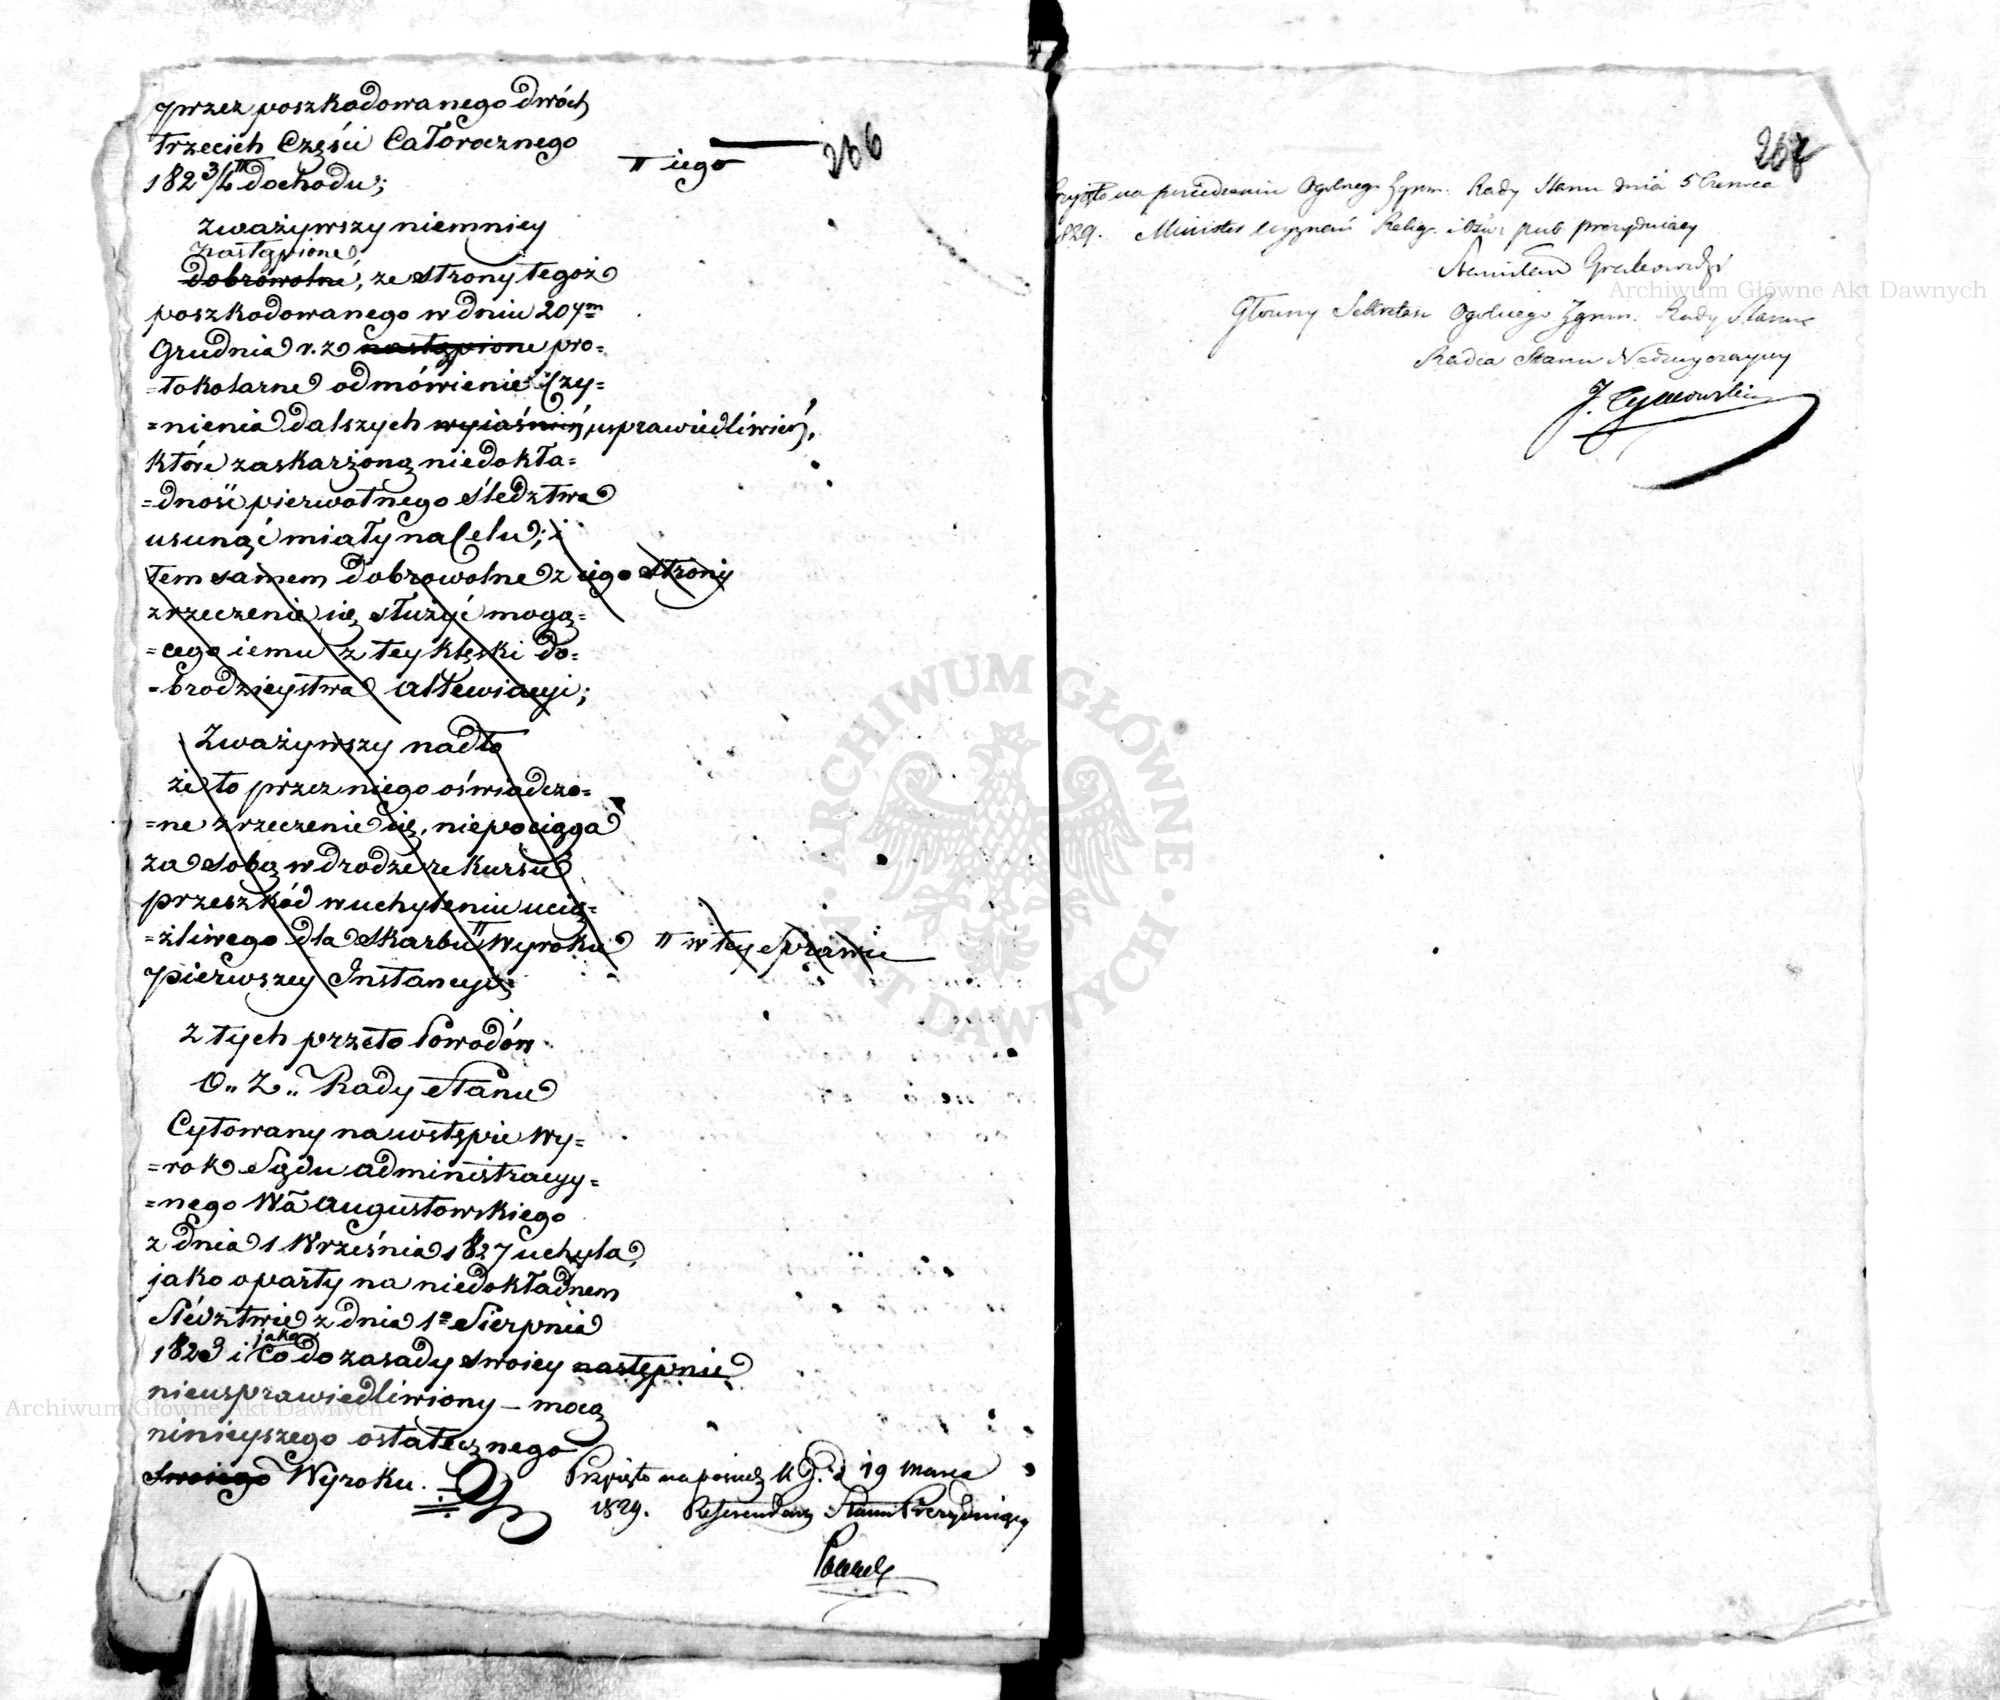 266
przez poszkodowanego dwóch
trzecich Części Całorocznego
182¾ " dochodu;
" iego
Zważywszy niemniey
zastąpione
dobrowolné, ze strony tegoż
poszkodowanego w dniu 20ym
Grudnia r. z. nastąpione pro=
=tokolarne odmówienie Czy=
=nienia dalszych wyiaśnień usprawiedliwień,
które zaskarżoną niedokła=
=dność pierwotnego śledztwa
usunąć miały na Celu; i
tem samem dobrowolne z iego strony
zrzeczenie się służyć mogą=
=cego iemu z tey klęski do=
=brodzieystwa allewiacyi;
Zważywszy nadto
że to przez niego oświadczo=
=ne zrzeczenie się, niepociąga
za sobą w drodze rekursu
przeszkód w uchyleniu ucią=
=żliwego dla Skarbu " Wyroku
" w tey sprawie
pierwszey Instancyi;
z tych przeto Powodów
O.. Z.. Rady Stanu
Cytowany na wstępie Wy=
=rok Sądu administracyy=
=nego Wa Augustowskiego
z dnia 1 Września 1827 uchyla,
jako oparty na niedokładnem
Śledztwie z dnia 1o Sierpnia
1823 i jako Co do zasady swoiey następnie
nieusprawiedliwiony – mocą
ninieyszego ostatecznego
swoiego Wyroku.
Przyięto na posiedz. d. 19 Marca
1829. Referendarz Stanu Prezyduiący
267
Przyjęto na posiedzeniu Ogólnego Zgrom. Rady Stanu dnia 5 Czerwca
1829. Minister Wyznań Relig. i Ośw. pub. prezyduiący
Stanisław Grabowski
Główny Sekretarz Ogólnego Zgrom. Rady Stanu
Radca Stanu Nadzwyczayny
J. Tymowski
ARCHIWUM GŁÓWNE AKT DAWNYCH
Archiwum Główne Akt Dawnych
Archiwum Główne Akt Dawnych